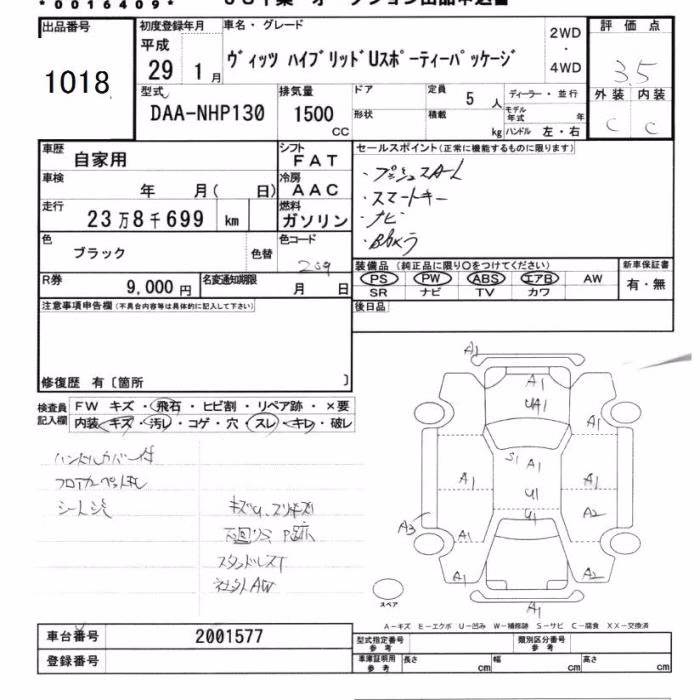 *0016409*
出品番号
1018
初度登録年月
平成
29 1月
車名・グレード
ヴィッツ ハイブリッドUスポーティーパッケージ
2WD
・
4WD
評価点
3.5
外装 内装
C C
型式
DAA-NHP130
排気量
1500
CC
ドア
形状
定員 5 人
積載 kg
ディーラー・並行
モデル年式 年
ハンドル 左・右
車歴
自家用
シフト
FAT
車検
年 月( 日)
冷房
AAC
走行
23万8千699 km
燃料
ガソリン
色
ブラック
色替
色コード
209
R券
9,000円
名変通知期限
月 日
セールスポイント(正常に機能するものに限ります)
・プッシュスタート
・スマートキー
・ナビ
・Bカメラ
装備品 (純正品に限り○をつけてください)
PS PW ABS エアB AW
SR ナビ TV カワ
新車保証書
有・無
後日品
注意事項申告欄(不具合内容等は具体的に記入して下さい)
修復歴 有〔箇所 〕
検査員
記入欄
FW キズ・飛石・ヒビ割・リペア跡・×要
内装・キズ・汚レ・コゲ・穴・スレ・キレ・破レ
ハンドルカバー付
フロアカーペット汚レ
シート汚
キズU、スリキズ
下回りサビ P跡
スタッドレスT
社外AW
A1
A1
UA1
A1
A1
S1
A1
A1
A1
U1
A2
U1
A3
A1
A1
A2
A1
スペア
A-キズ E-エクボ U-凹み W-補修跡 S-サビ C-腐食 XX-交換済
車台番号
2001577
登録番号
型式指定番号
参考
類別区分番号
参考
車庫証明用
参考
長さ cm
幅 cm
高さ cm